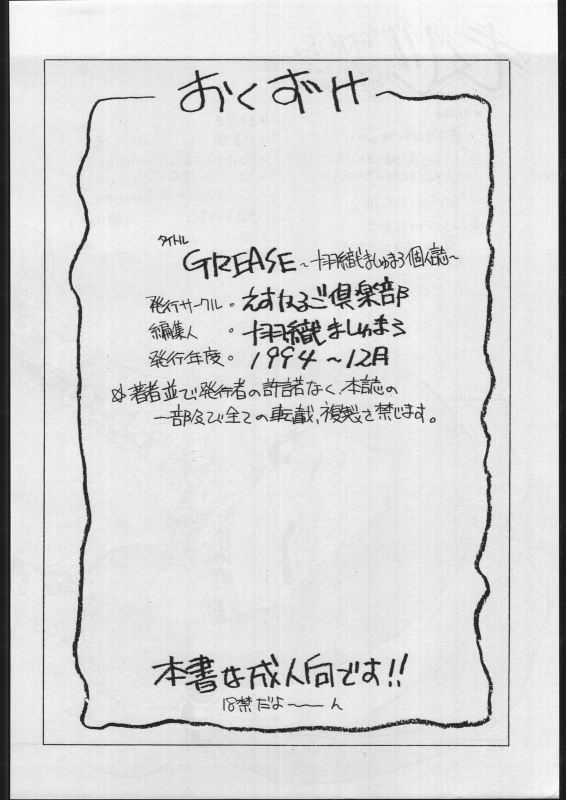 おくずけ
タイトル
GREASE 〜十羽織ましゅまろ個人誌〜
発行サークル。えすねるご倶楽部
編集人。十羽織ましゅまろ
発行年度。1994〜12月
※著者並び発行者の許諾なく、本誌の
一部及び全ての転載、複製を禁じます。
本書は成人向です!!
18禁だよ〜〜ん